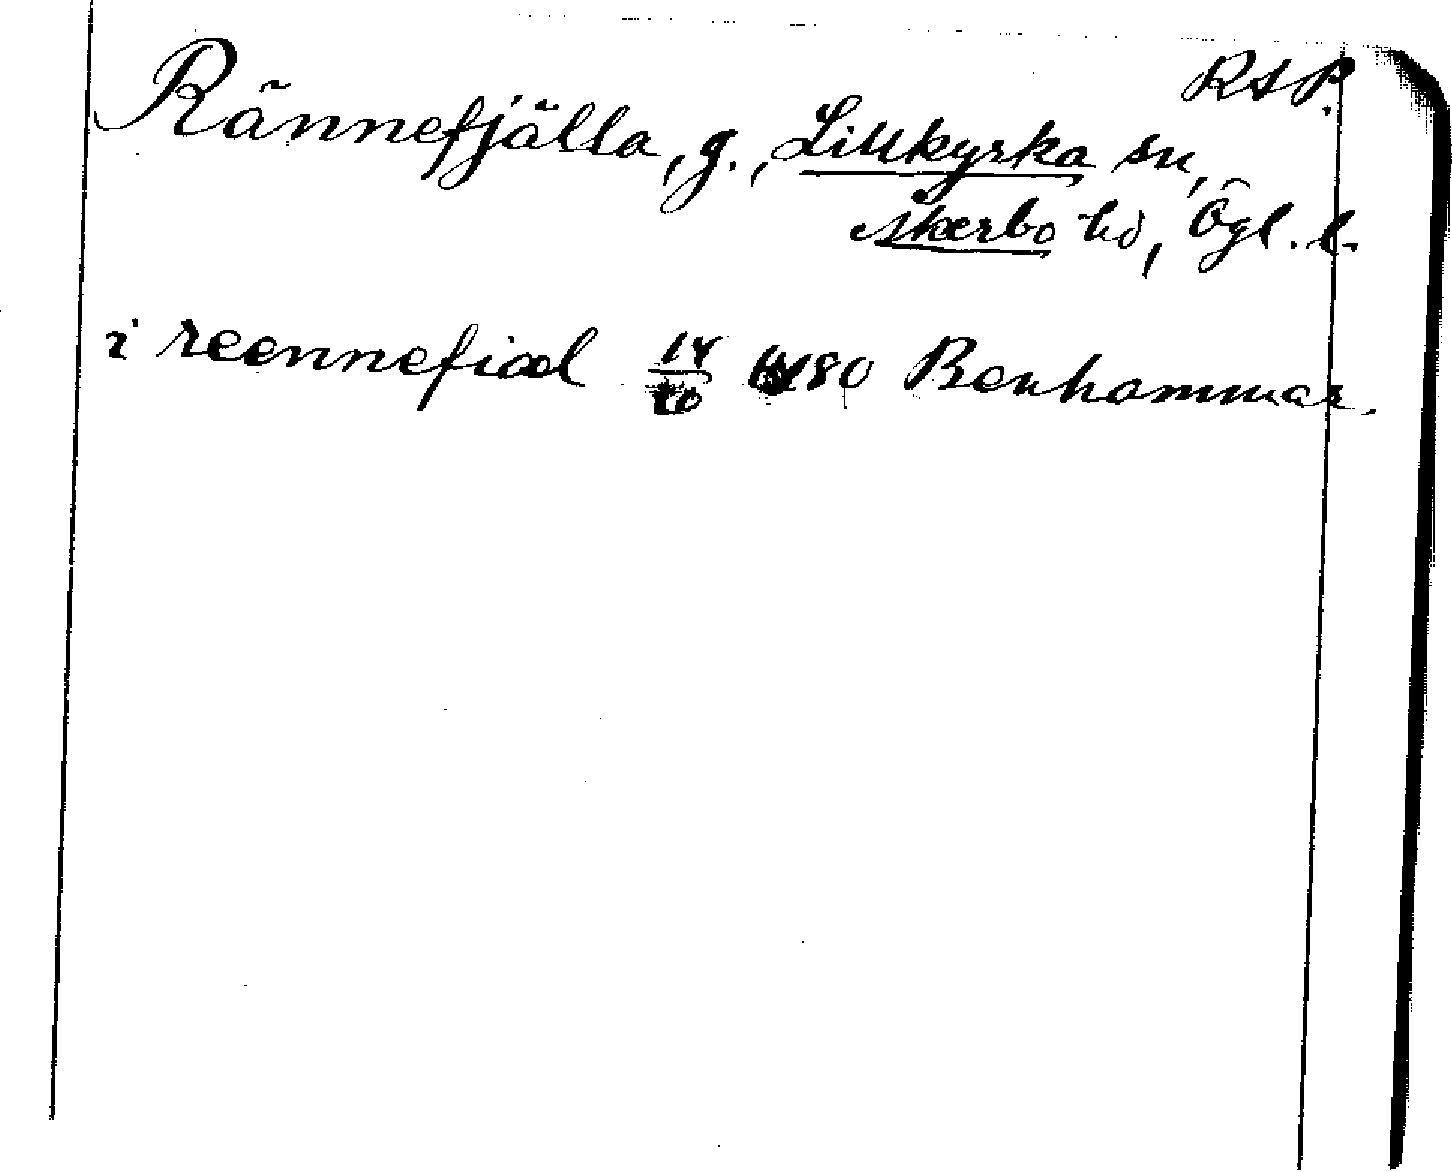 RAP.
Rännefjälla, g., Lillkyrka sn,
Åkerbo hd, Ögl. l.
i reennefiæl 14/10 1480 Benhammar.